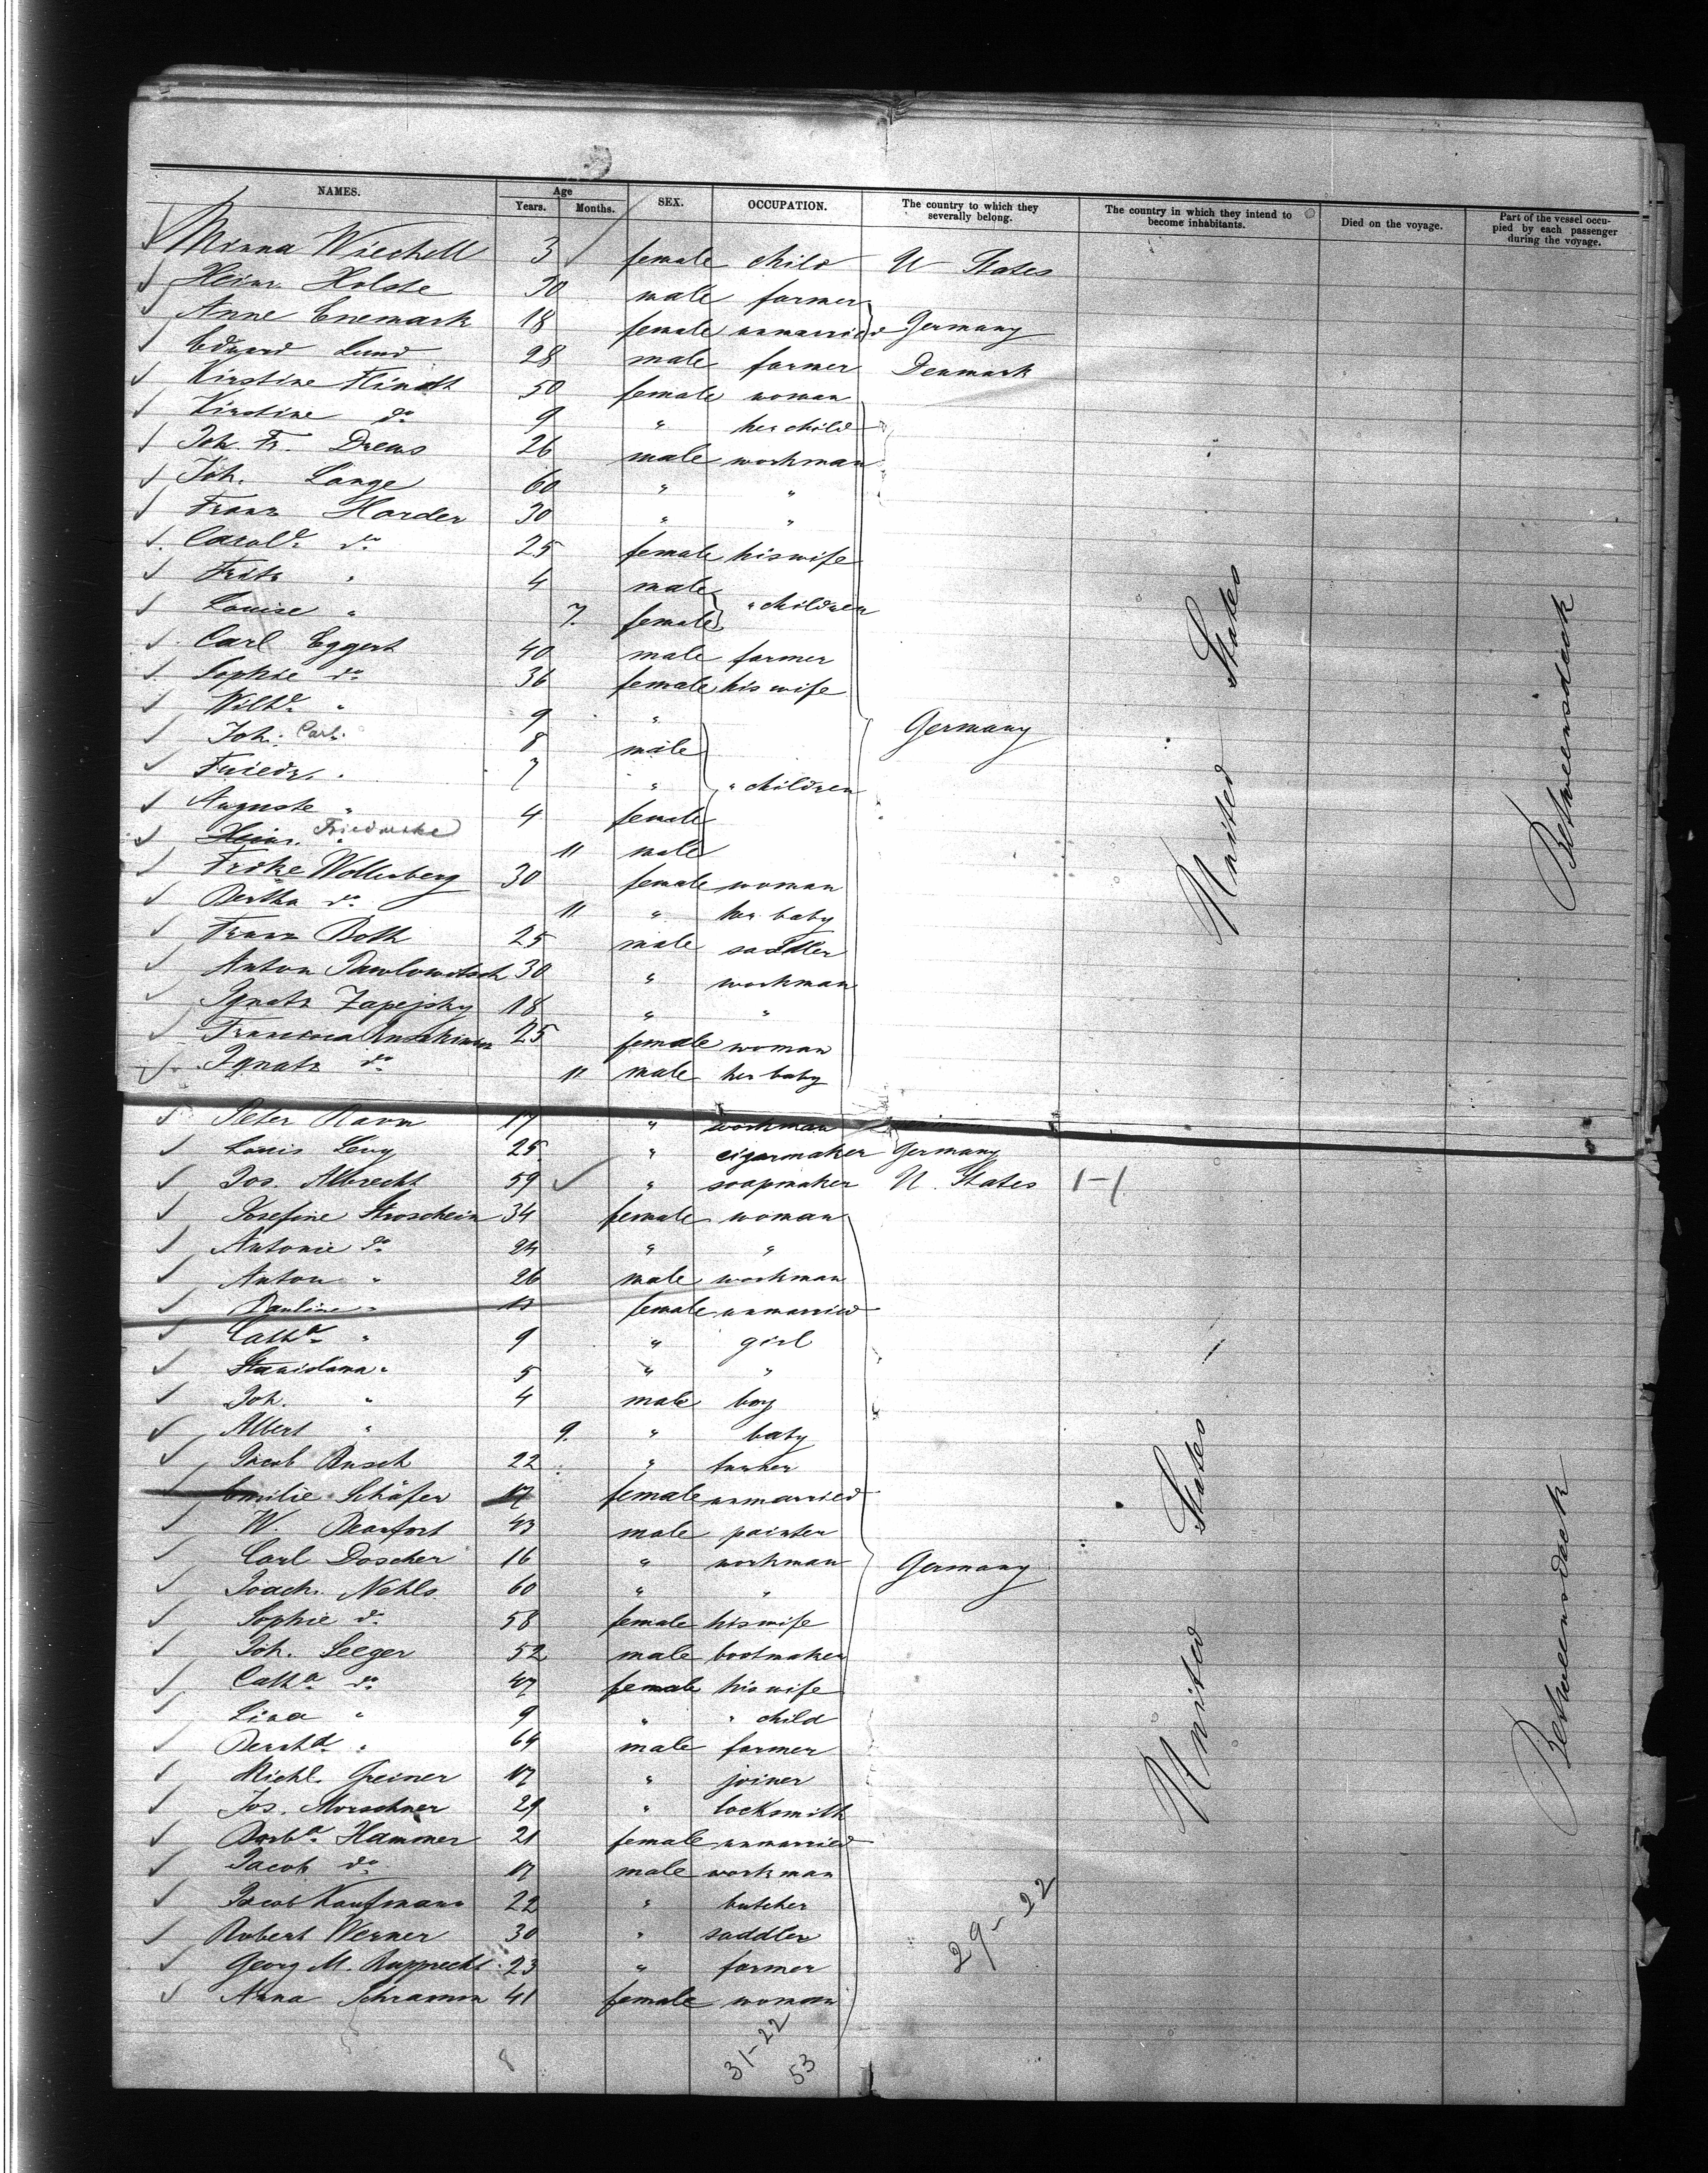 NAMES. Age Years. Months. SEX. OCCUPATION. The country to which they severally belong. The country in which they intend to become inhabitants. Died on the voyage. Part of the vessel occupied by each passenger during the voyage.
Minna Wiechell 3 female child U States
Heinr. Holste 30 male farmer
Anne Enemark 18 female unmarried Germany
Edward Lund 28 male farmer Denmark
Kirstine Flindt 50 female woman
Kirstine do 9 " her child
Joh. Fr. Drews 26 male workman
Joh. Lange 60 " "
Franz Harder 30 " "
Carole do 25 female his wife
Fritz " 4 male
Louise " 7. female " children
Carl Eggert 40 male farmer
Sophie do 36 female his wife
Wilhe " 9 "
Joh. Carl. 8 male Germany
Friedr. " 7 " " children
Auguste " 4 female
Heinr. Friedericke 11 male
Frike Wollerberg 30 female woman
Bertha do 11 " her baby
Franz Both 25 male saddler
Anton Pawlowitsch 30 " workman
Ignatz 18 " "
25 female woman
Ignatz do 11 male her baby
Peter Ravn 17 " workman
Louis Levy 25 " cigarmaker Germany
Jos. Albrecht 59 " soapmaker U. States
Josefine Stroschein 34 female woman
Antonie do 24 " "
Anton " 26 male workman
Pauline " female unmarried
Catha " 9 " girl
Stanislawa " 5 " "
Joh. " 4 male boy
Albert " 9. " baby
Jacob Rusch 22 "
Emilie Schäfer 17 female unmarried
W. Beaufort 43 male painter
Carl Doscher 16 " workman Germany
Joach. Nehls 60 " "
Sophie do 58 female his wife
Joh. Seeger 52 male bootmaker
Catha do 47 female his wife
Lina " 9 " " child
Bernhd " 64 male farmer
Michl. Greiner 17 " joiner
Jos. Morschner 29 " locksmith
Barba Hammer 21 female unmarried
Jacob do 17 male workman
Jacob Kaufmann 22 " butcher
Robert Werner 30 " saddler
Georg M. Rupprecht 23 " farmer
Anna Schramm 41 female woman
United States
Betweensdeck
United States
Betweensdeck
29-22
31-22
53
8